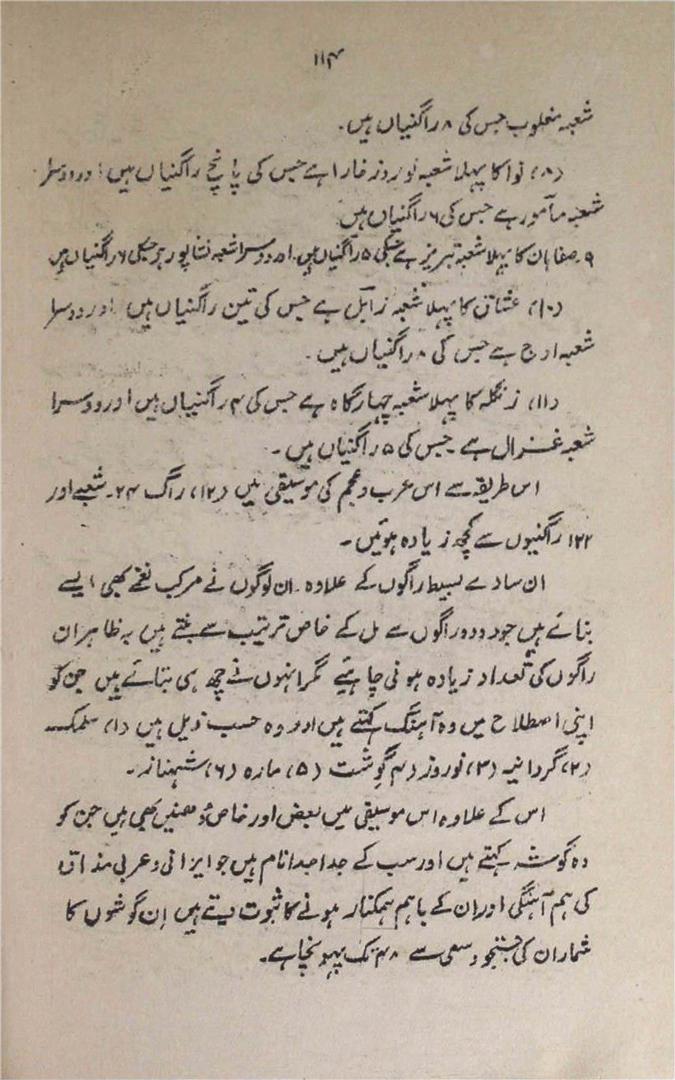 ۱۱۴
شعبہ مغلوب جس کی ۸ راگنیاں ہیں۔
(۸) نوا کا پہلا شعبہ نوروز خارا ہے جس کی پانچ راگنیاں ہیں اور دوسرا
شعبہ مآمور ہے جس کی ۶ راگنیاں ہیں
۹۔ صفاہان کا پہلا شعبہ تبریز ہے جسکی ۵ راگنیاں ہیں۔ اور دوسرا شعبہ نشاپور ہے جسکی ۶ راگنیاں ہیں
(۱۰) عشاق کا پہلا شعبہ زابل ہے جس کی تین راگنیاں ہیں اور دوسرا
شعبہ اوج ہے جس کی ۸ راگنیاں ہیں۔
(۱۱) زنگلہ کا پہلا شعبہ چہارگاہ ہے جس کی ۴ راگنیاں ہیں اور دوسرا
شعبہ غزال ہے۔ جس کی ۵ راگنیاں ہیں۔
اس طریقہ سے اس عرب و عجم کی موسیقی میں (۱۲) راگ ۲۴۔ شعبے اور
۱۲۲ راگنیوں سے کچھ زیادہ ہوئیں۔
ان سادے بسیط راگوں کے علاوہ۔ ان لوگوں نے مرکب نغمے بھی ایسے
بنائے ہیں جو دو دو راگوں سے مل کے خاص ترتیب سے بنتے ہیں بہ ظاہر ان
راگوں کی تعداد زیادہ ہونی چاہئیے مگر انہوں نے چھ ہی بتائے ہیں جن کو
اپنی اصطلاح میں وہ آہنگ کہتے ہیں اور وہ حسب ذیل ہیں (۱) سلمک
(۲) گردانیہ (۳) نوروز (۴) گوشت (۵) مارہ (۶) شہناز۔
اس کے علاوہ اس موسیقی میں بعض اور خاص دُھنیں بھی ہیں جن کو
وہ گوشہ کہتے ہیں اور سب کے جدا جدا نام ہیں جو ایرانی و عربی مذاق
کی ہم آہنگی اور ان کے باہم ہمکنار ہونے کا ثبوت دیتے ہیں اِن گوشوں کا
شمار ان کی جستجو و سعی سے ۴۸ تک پہونچا ہے۔